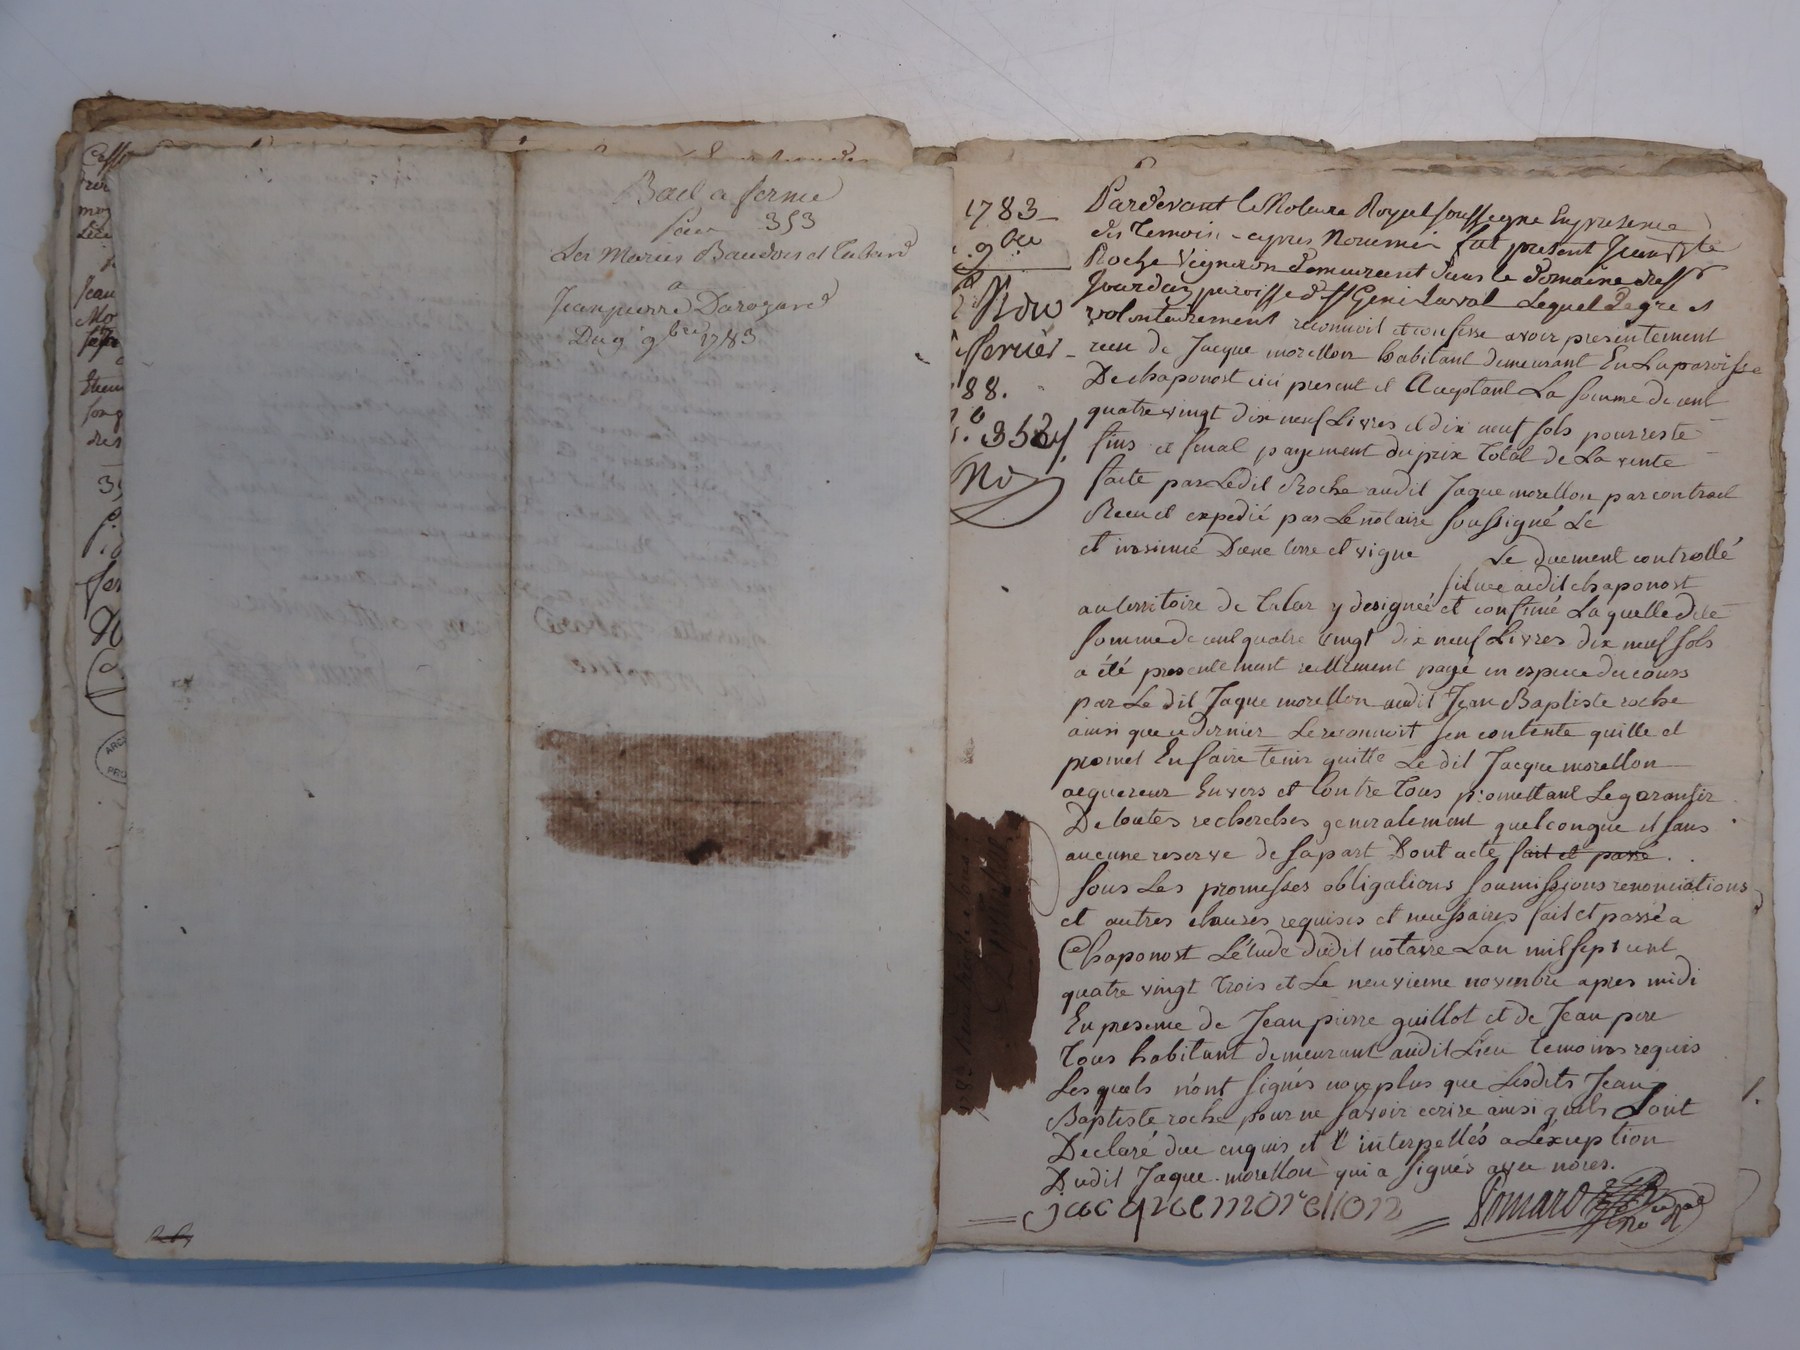 Bail a ferme
par 353
Les Mariés Baudois et
a
Jean pierre Darozard
Du 9 9bre 1783
1783
9bre
fevrier
88.
353
No
Pardevant le Notaire Royal soussigné En presence
des Temoins apres Nommés fut present Jean Bte
Roche Vigneron Demeurant dans le Domaine de
Jourdan parroisse de St Genis Laval Lequel De gré et
volontairement reconnoit et confesse avoir presentement
receu de Jacque morellon habitant demeurant En La paroisse
De chaponost ici present et Acceptant La somme de cent
quatre vingt dix neuf Livres et dix neuf sols pour reste
fins et final payement du prix total de La vente
faite par Ledit Roche audit Jaque morellon par contract
Receu et expedié par Le notaire soussigné Le
Le duement controllé
et insinué D'une terre et vigne
situee audit chaponost
au territoire de y designée et confinée Laquelle dite
somme de cent quatre vingt dix neuf Livres dix neuf sols
a été presentement réellement payé en espece du cours
par Le dit Jaque morellon audit Jean Baptiste roche
ainsi que ce dernier Le reconnoit s'en contente quitte et
promet En faire tenir quitte Le dit Jacque morellon
acquereur Envers et Contre tous promettant Le garantir
De toutes recherches generalement quelconque et sans
aucune reserve de sa part Dont acte fait et passé
sous Les promesses obligations soumissions renonciations
et autres clauses requises et necessaires fait et passé a
Chaponost L'étude dudit notaire L'an mil sept cent
quatre vingt trois et Le neuvieme novembre apres midi
En presence de Jean pierre guillot et de Jean pere
tous habitant demeurant audit Lieu temoins requis
Lesquels n'ont signés non plus que Lesdits Jean
Baptiste roche pour ne savoir ecrire ainsi quils L'ont
Declaré due enquis et interpellés a L'exception
Dudit Jaque morellon qui a signés avec nores.
jacque morellon